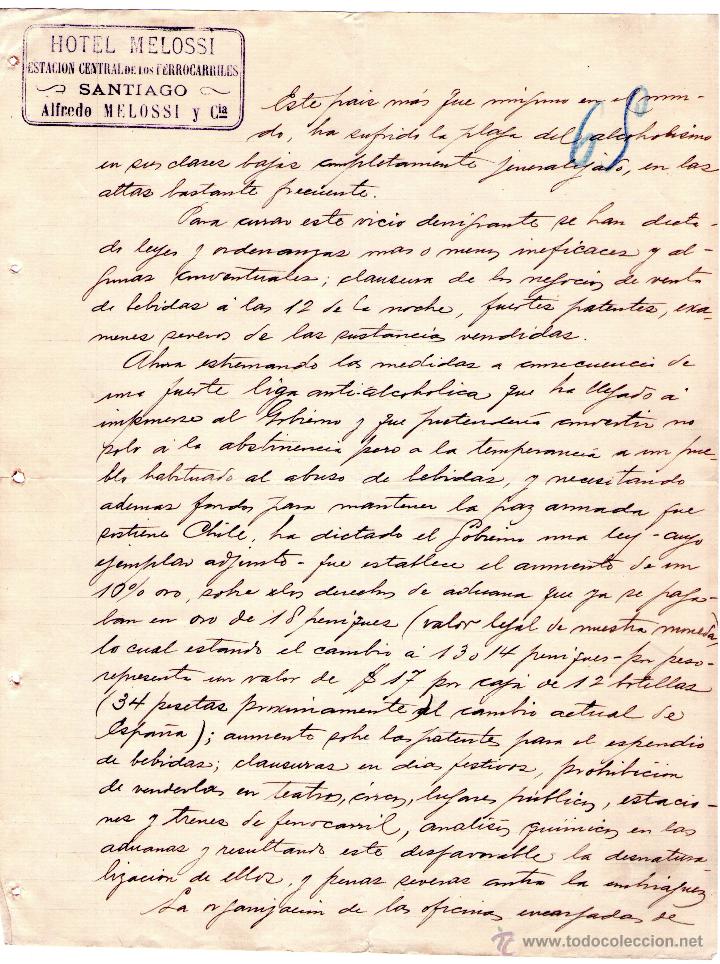 HOTEL MELOSSI
ESTACION CENTRAL DE LOS FERROCARRILES
SANTIAGO
Alfredo MELOSSI y Cia
68
Este pais más que ninguno en el mun-
do, ha sufrido la plaga del alcoholismo
en sus clases bajas completamente jeneralizado, en las
altas bastante frecuente.
Para curar este vicio denigrante se han dicta-
do leyes y ordenanzas mas o menos ineficaces y al-
gunas conventuales; clausura de los negocios de venta
de bebidas á las 12 de la noche, fuertes patentes, exa-
menes severos de las sustancias vendidas.
Ahora estremando las medidas a consecuencia de
una fuerte liga anti-alcoholica que ha llegado á
imponerse al Gobierno y que pretenderia convertir no
solo á la abstinencia pero a la temperancia a un pue-
blo habituado al abuso de bebidas, y necesitando
ademas fondos para mantener la paz armada que
sostiene Chile, ha dictado el Gobierno una ley - cuyo
ejemplar adjunto - que establece el aumento de un
10% oro, sobre los derechos de aduana que ya se paga-
ban en oro de 18 peniques (valor legal de nuestra moneda)
lo cual estando el cambio á 13 o 14 peniques por peso-
representa un valor de $ 17 por caja de 12 botellas
(34 pesetas proximamente al cambio actual de
España); aumento sobre las patentes para el espendio
de bebidas; clausuras en dias festivos, prohibicion
de venderlas en teatros, circos, lugares publicos, estacio-
nes y trenes de ferrocarril, analisis quimicos en las
aduanas y resultando este desfavorable la desnatura-
lizacion de ellos, y penas severas contra la embriaguez
La organizacion de las oficinas encargadas de
www.todocoleccion.net